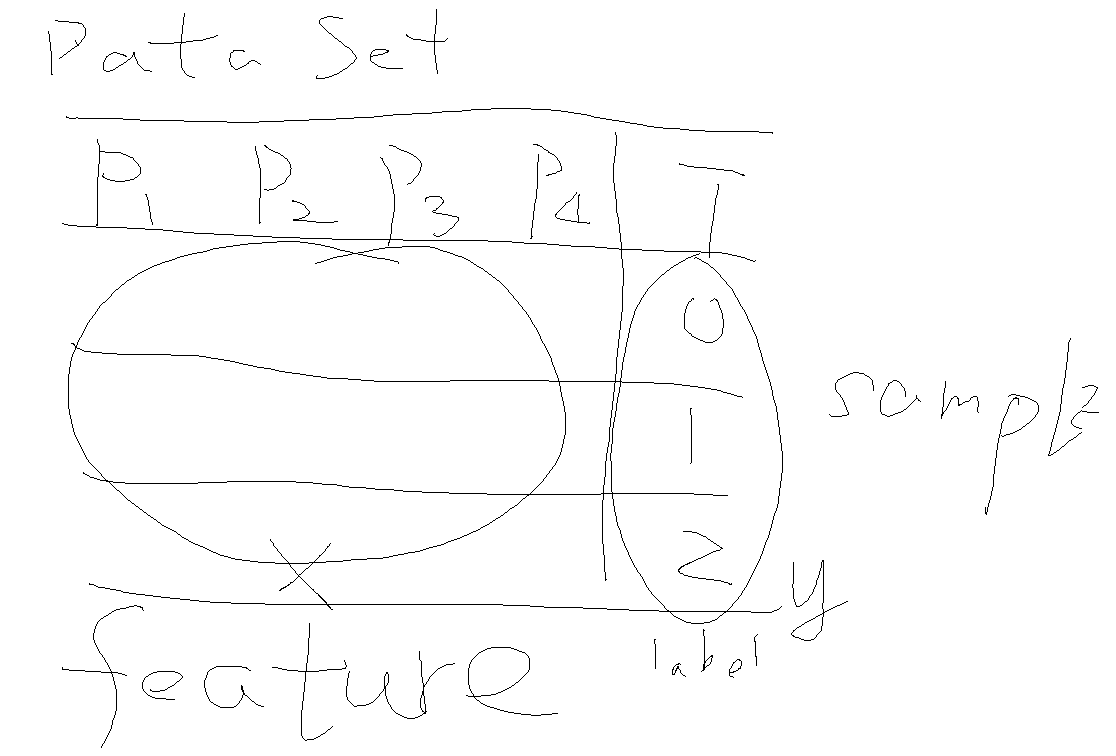 Data Set
P1 P2 P3 P4 T
0
1
sample
2
X y
feature label